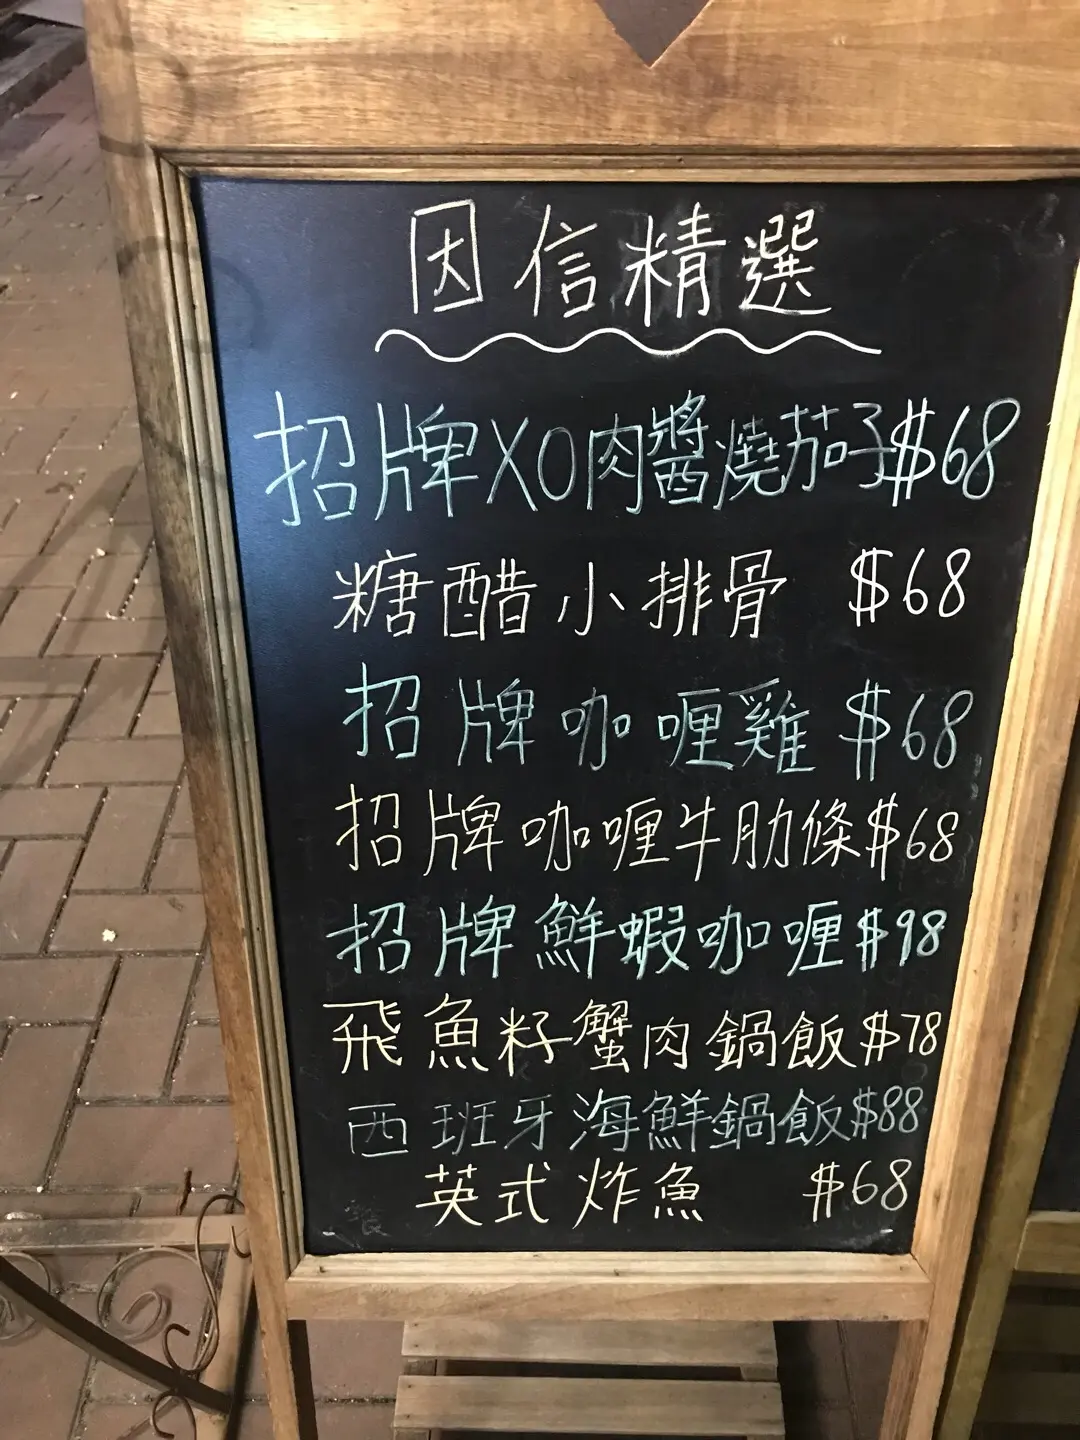 因信精選
招牌XO肉醬燒茄子$68
糖醋小排骨 $68
招牌咖喱雞 $68
招牌咖喱牛肋條$68
招牌鮮蝦咖喱$98
飛魚籽蟹肉鍋飯$78
西班牙海鮮鍋飯$88
英式炸魚 $68